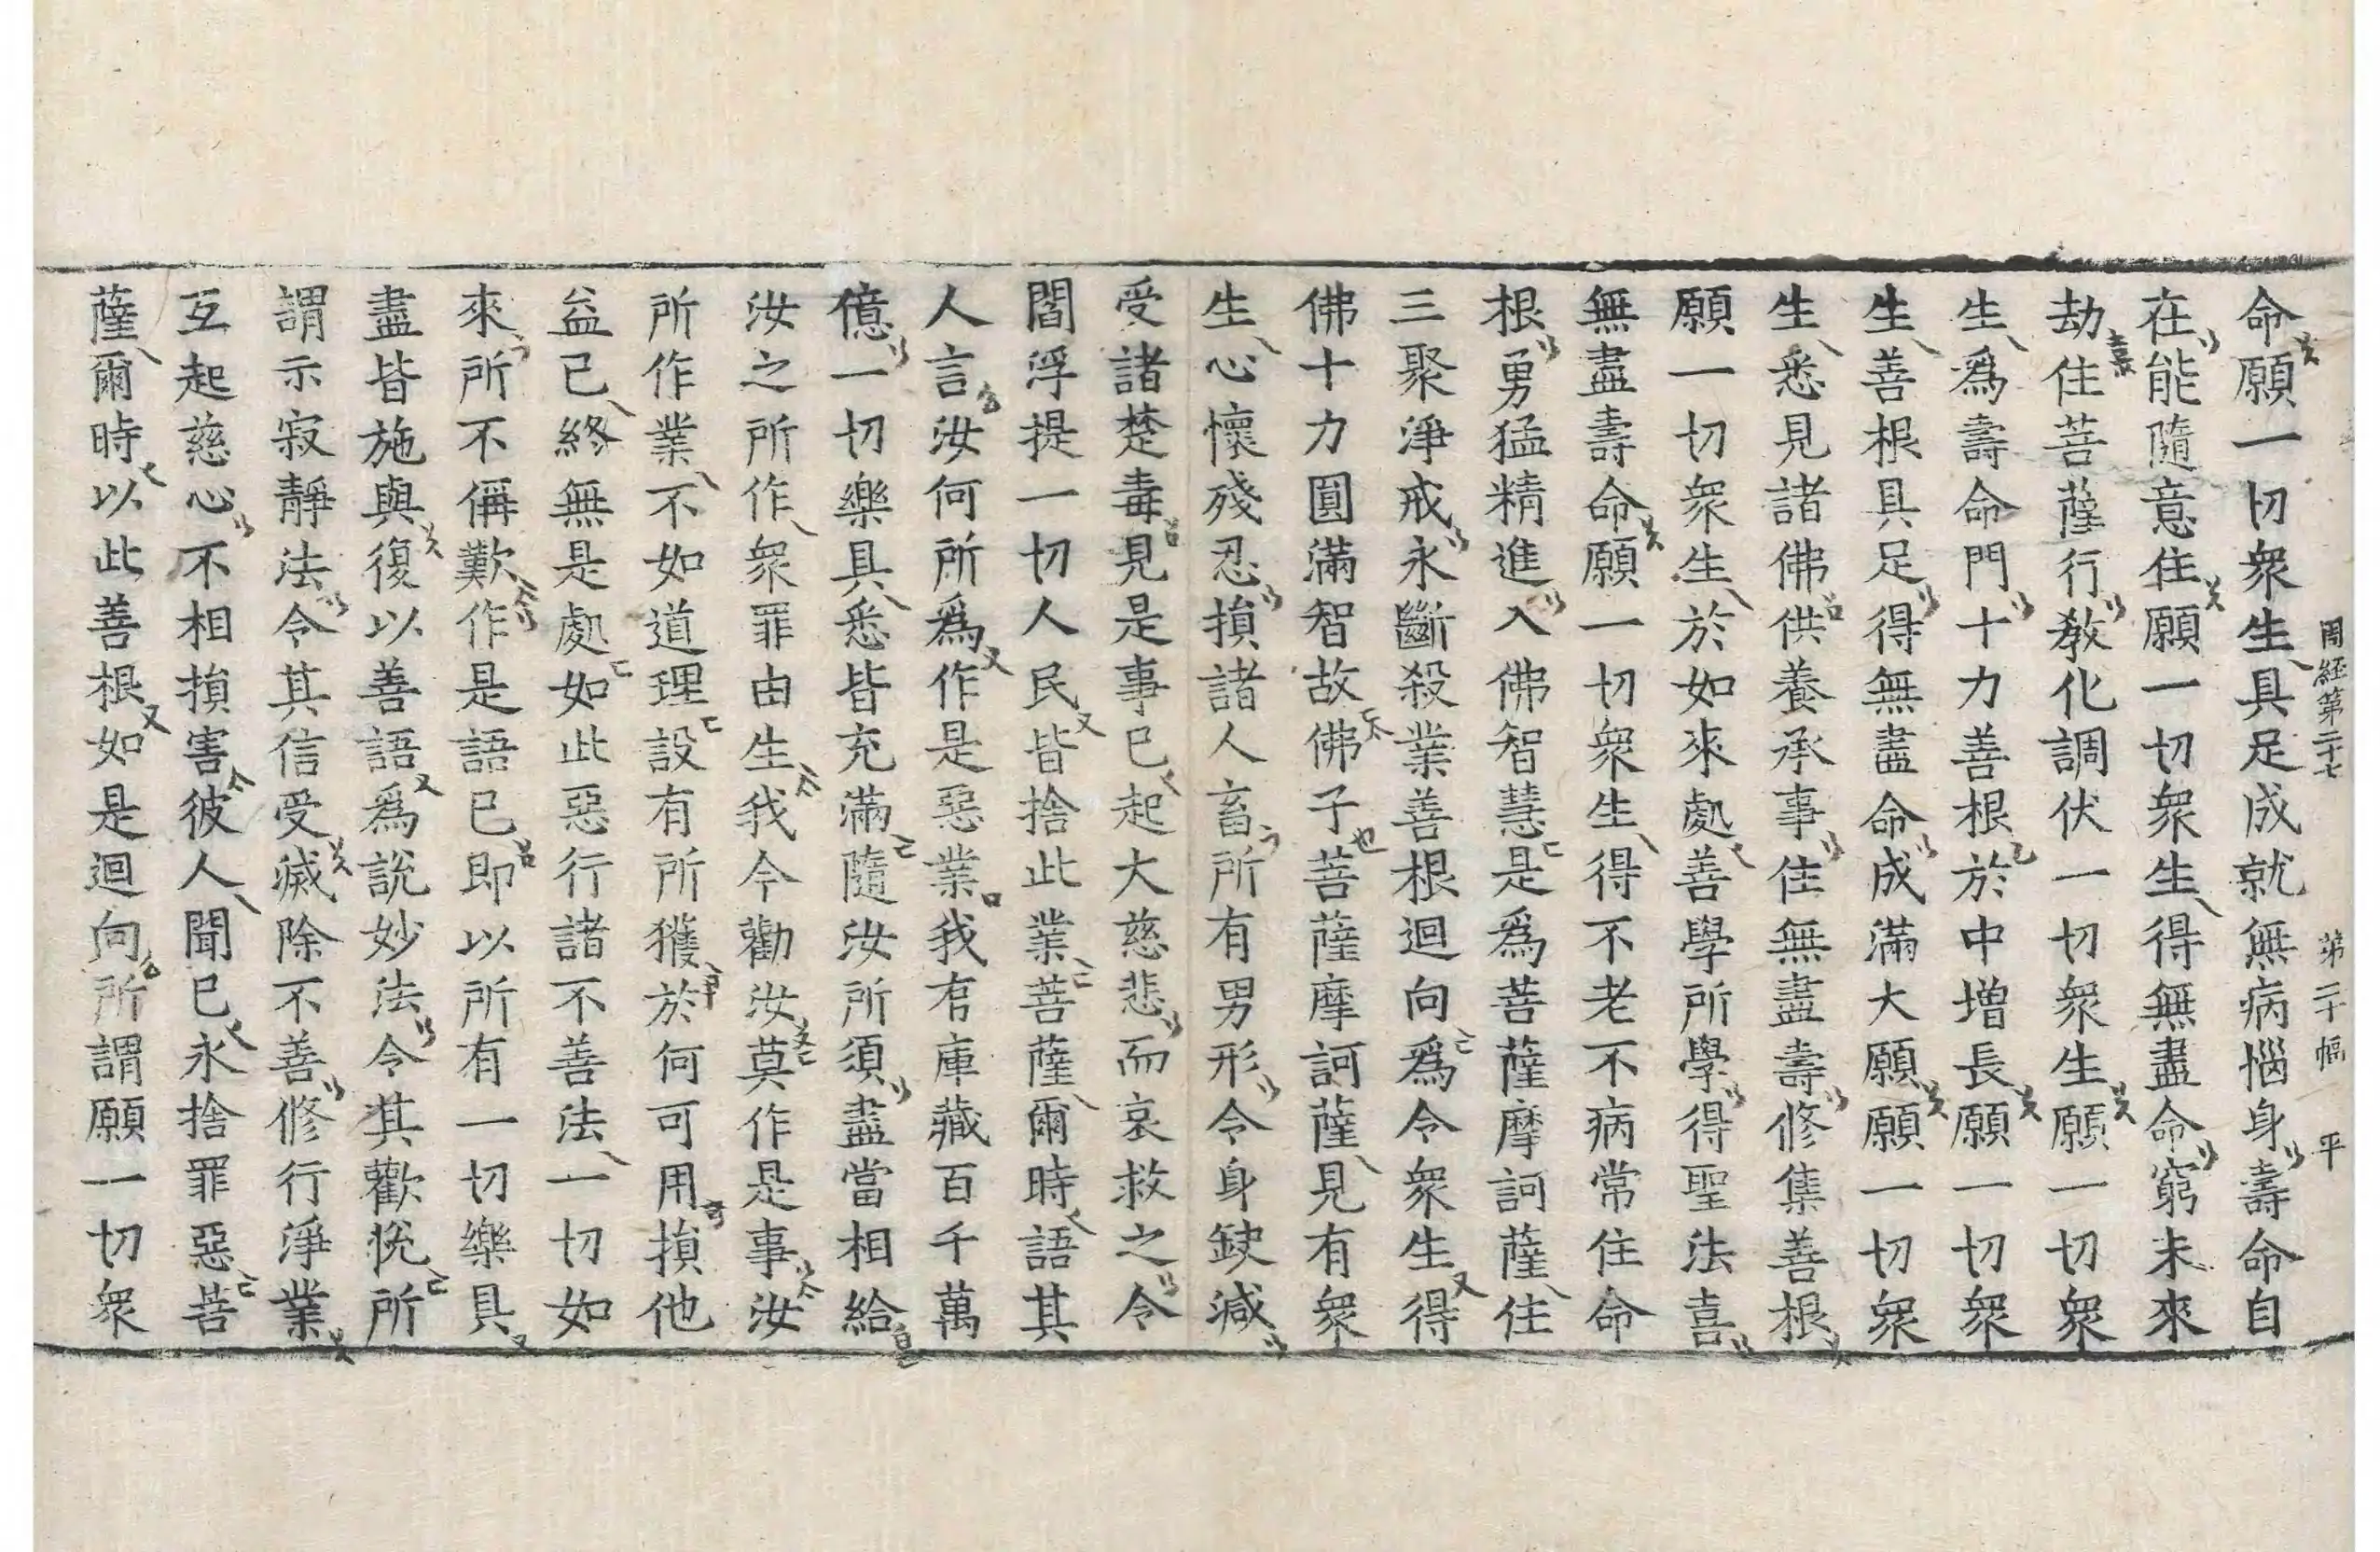 周經第二十七 第二十幅 平
命願一切衆生具足成就無病惱身壽命自
在能隨意住願一切衆生得無盡命窮未來
劫住菩薩行教化調伏一切衆生願一切衆
生爲壽命門十力善根於中增長願一切衆
生善根具足得無盡命成滿大願願一切衆
生悉見諸佛供養承事住無盡壽修集善根
願一切衆生於如來處善學所學得聖法喜
無盡壽命願一切衆生得不老不病常住命
根勇猛精進入佛智慧是爲菩薩摩訶薩住
三聚淨戒永斷殺業善根迴向爲令衆生得
佛十力圓滿智故佛子菩薩摩訶薩見有衆
生心懷殘忍損諸人畜所有男形令身缺減
受諸楚毒見是事已起大慈悲而哀救之令
閻浮提一切人民皆捨此業菩薩爾時語其
人言汝何所爲作是惡業我有庫藏百千萬
億一切樂具悉皆充滿隨汝所須盡當相給
汝之所作衆罪由生我今勸汝莫作是事汝
所作業不如道理設有所獲於何可用損他
益已終無是處如此惡行諸不善法一切如
來所不偁歎作是語已即以所有一切樂具
盡皆施與復以善語爲說妙法令其歡悅所
謂示寂靜法令其信受滅除不善修行淨業
互起慈心不相損害彼人聞已永捨罪惡菩
薩爾時以此善根如是迴向所謂願一切衆